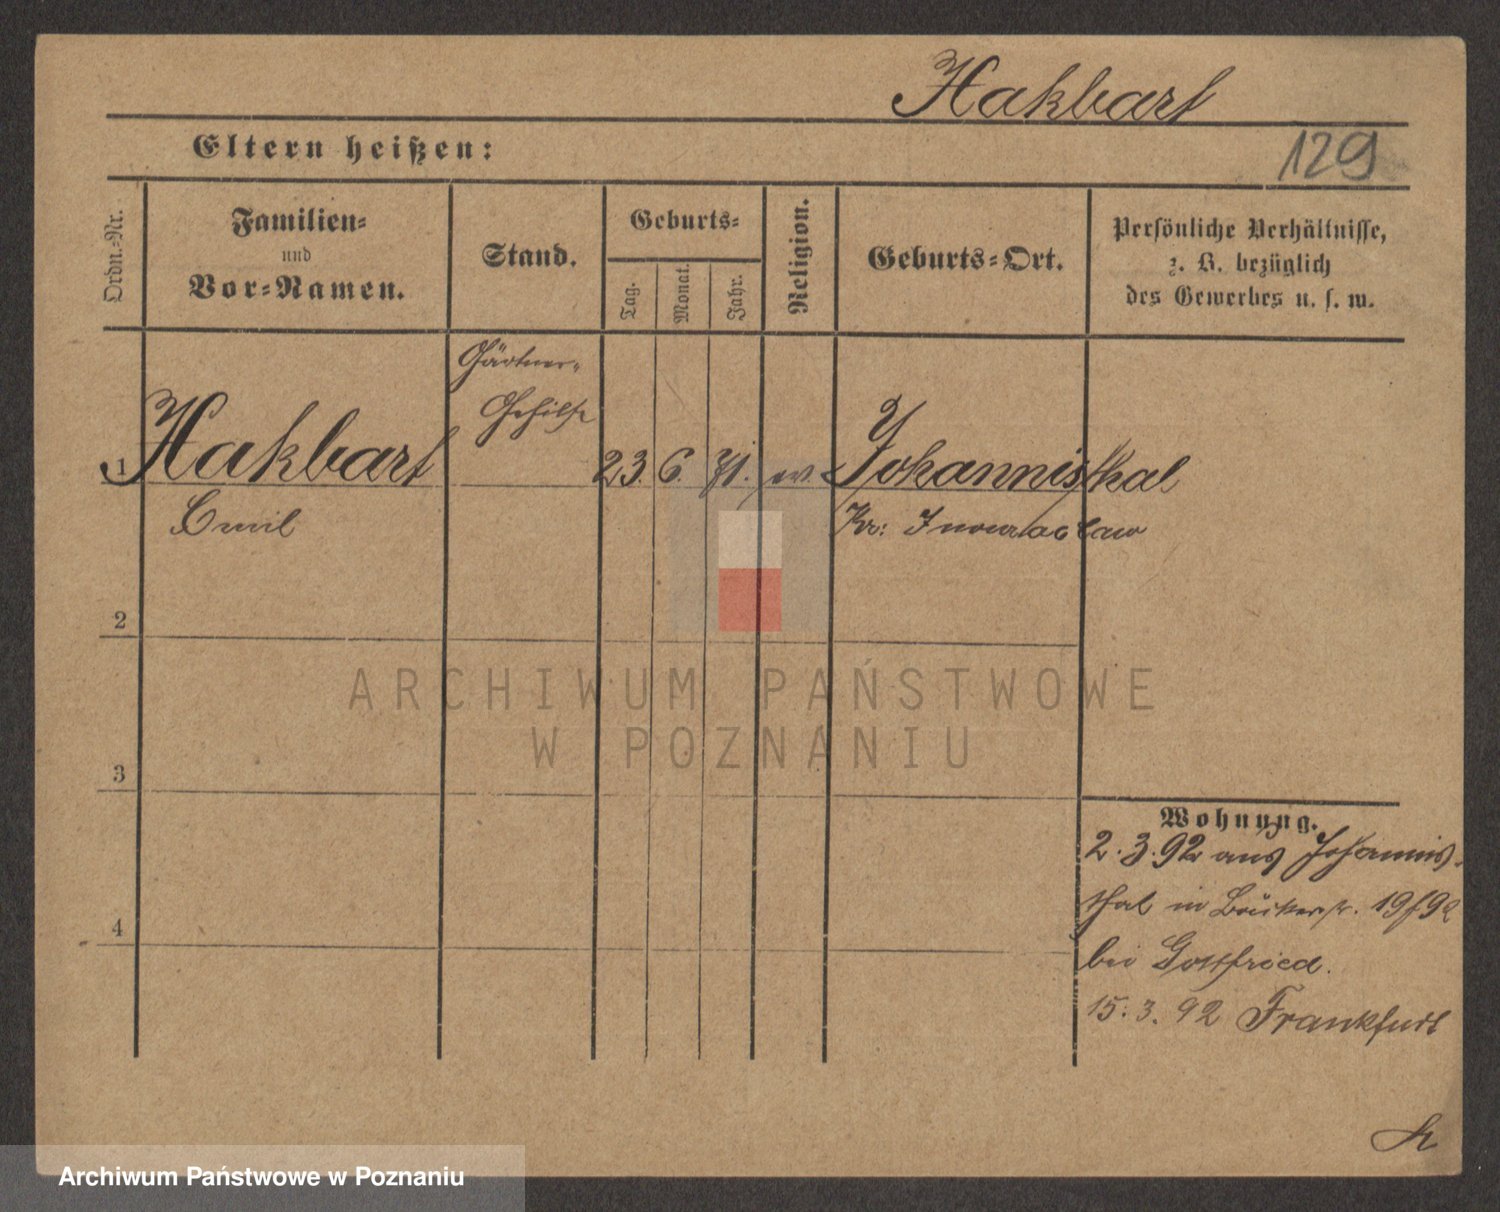 Hakbart
129
Eltern heißen:
Ordn.-Nr.
Familien-
und
Vor-Namen.
Stand.
Geburts-
Tag.
Monat.
Jahr.
Religion.
Geburts-Ort.
Persönliche Verhältnisse,
z. B. bezüglich
des Gewerbes u. s. w.
Gärtner-
Gehilfe
1 Hakbart 23. 6. 71. ev. Johannisthal
Emil Kr: Inowraclaw
2
ARCHIWUM PAŃSTWOWE
W POZNANIU
3
Wohnung.
2.3.92 aus Johannis-
thal in Bäckerstr. 19/92
bei Gottfried.
4
15.3.92 Frankfurt
Archiwum Państwowe w Poznaniu